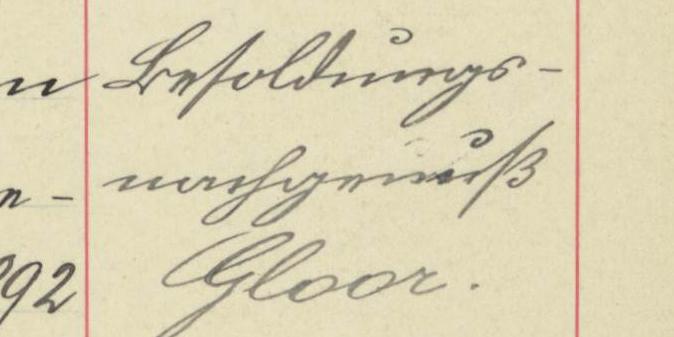 Besoldungs-
nachgenuß
Gloor.